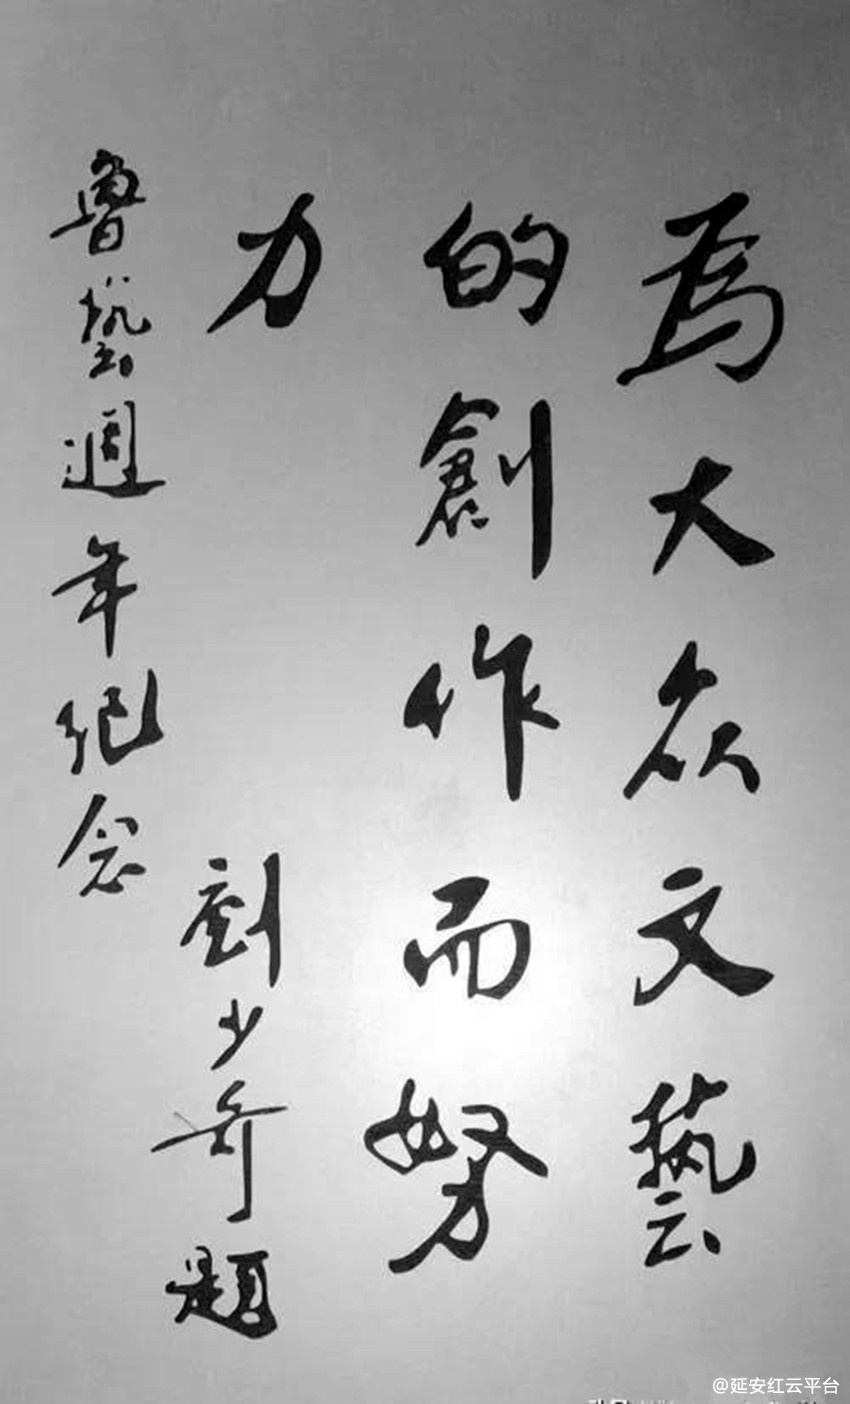 為大众文藝
的創作而努
力
劉少奇題
魯藝週年紀念
@延安红云平台